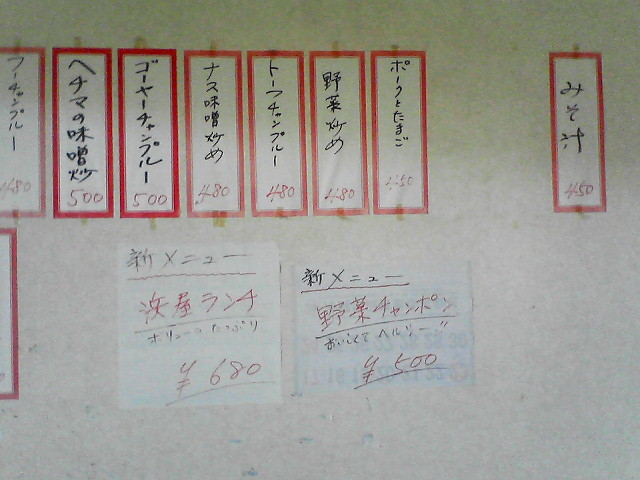 フーチャンプルー
480
ヘチマの味噌炒
500
ゴーヤーチャンプルー
500
ナス味噌炒め
480
トーフチャンプルー
480
野菜炒め
480
ポークとたまご
450
みそ汁
450
新メニュー
浜屋ランチ
ボリュームたっぷり
¥680
新メニュー
野菜チャンポン
おいしくてヘルシー"
¥500